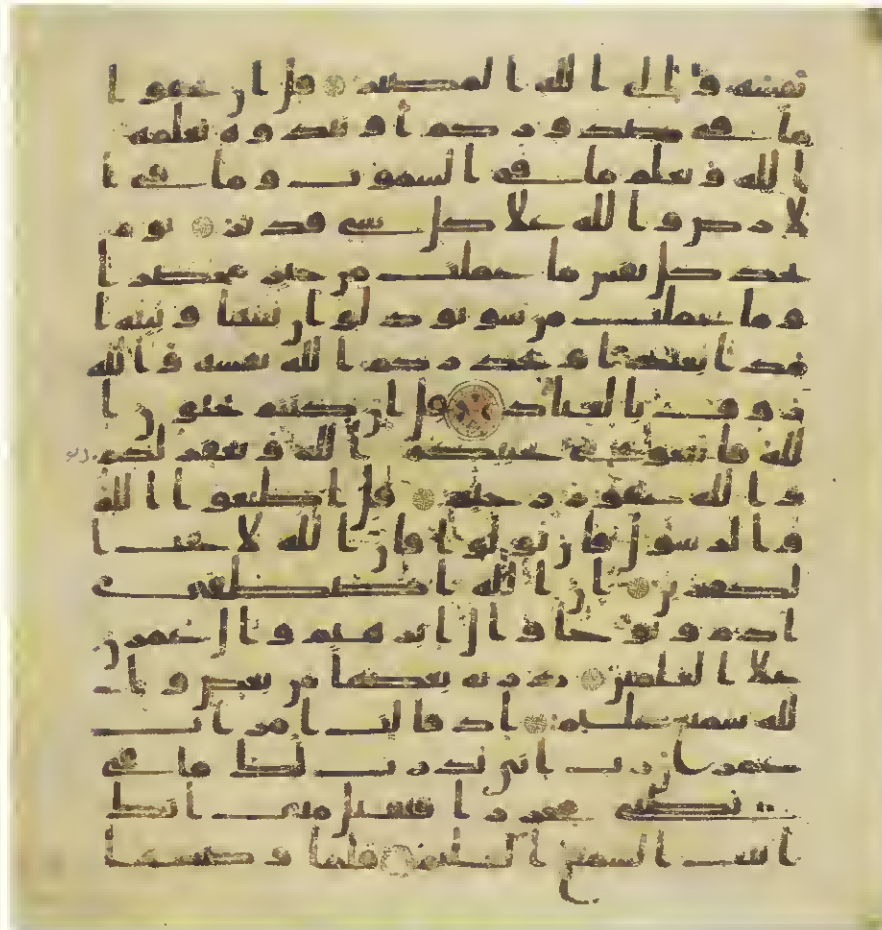 نفسه و الى الله المصير قل ان تخفوا
ما في صدوركم او تبدوه يعلمه
الله و يعلم ما في السموت و ما في ا
لارض و الله علا كل شي قدير يوم
تجد كل نفس ما عملت من خير محضرا
و ما عملت من سو تود لو ان بينها و بينه ا
مدا بعيدا و يحذركم الله نفسه و الله
روف بالعباد قل ان كنتم تحبون ا
لله فاتبعوني يحببكم الله و يغفر لكم
و الله غفور رحيم قل اطيعوا الله
و الرسول فان تولوا فان الله لا يحب ا
لكفرين ان الله اصطفى
ادم و نوحا و ال ابرهيم و ال عمرن
علا العلمين ذرية بعضها من بعض و ا
لله سميع عليم اذ قالت امرات
عمرن رب اني نذرت لك ما في
بطني محررا فتقبل مني انك
انت السميع العليم فلما وضعتها